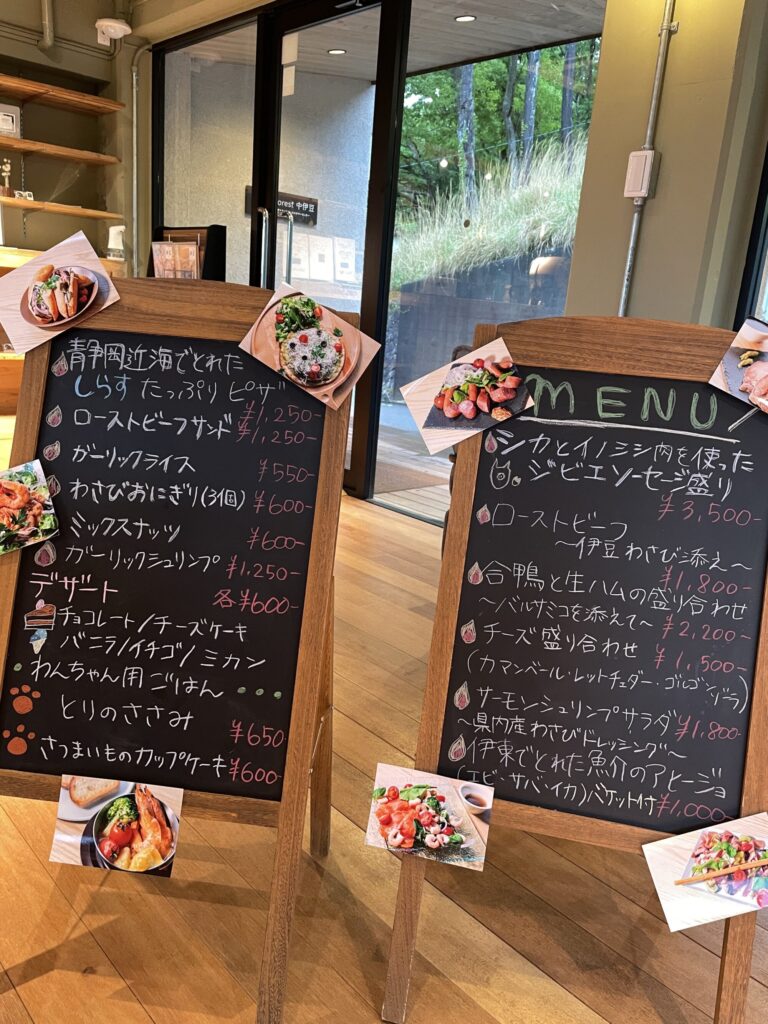 orest 中伊豆
静岡近海でとれた
しらす たっぷり ピザ
¥1,250-
ローストビーフサンド ¥1,250-
ガーリックライス ¥550-
わさびおにぎり(3個) ¥600-
ミックスナッツ ¥600-
ガーリックシュリンプ ¥1,250-
デザート 各¥600-
チョコレート/チーズケーキ
バニラ/イチゴ/ミカン
わんちゃん用ごはん
とりのささみ ¥650-
さつまいものカップケーキ ¥600-
MENU
シカとイノシシ肉を使った
ジビエソーセージ盛り
¥3,500-
ローストビーフ
〜伊豆わさび添え〜
¥1,800-
合鴨と生ハムの盛り合わせ
〜バルサミコを添えて〜 ¥2,200-
チーズ盛り合わせ ¥1,500-
(カマンベール・レットチェダー・ゴルゴンゾラ)
サーモンシュリンプサラダ ¥1,800-
〜県内産わさびドレッシング〜
伊東でとれた魚介のアヒージョ
(エビ・サバ・イカ)バケット付 ¥1,000-